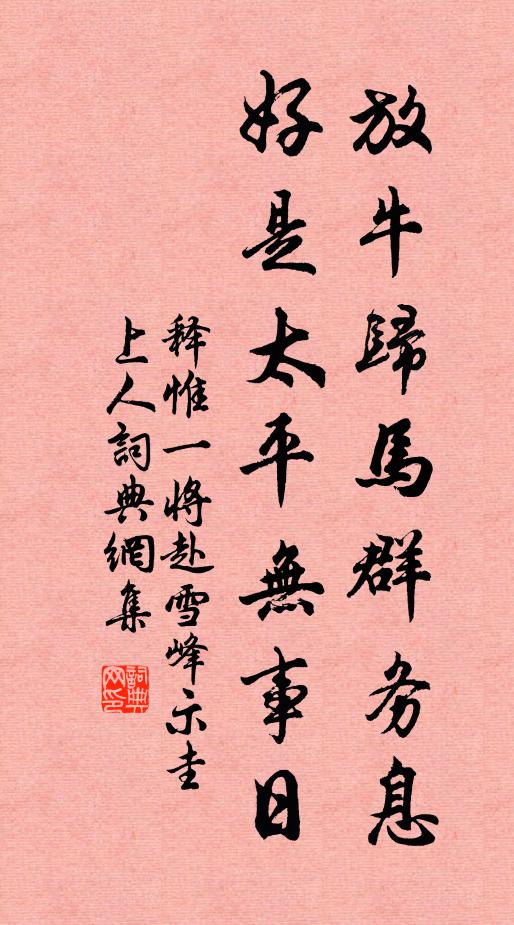 放牛歸馬群务息
好是太平無事日
释惟一将赴雪峰示圭
上人詞典網集
詞典网印